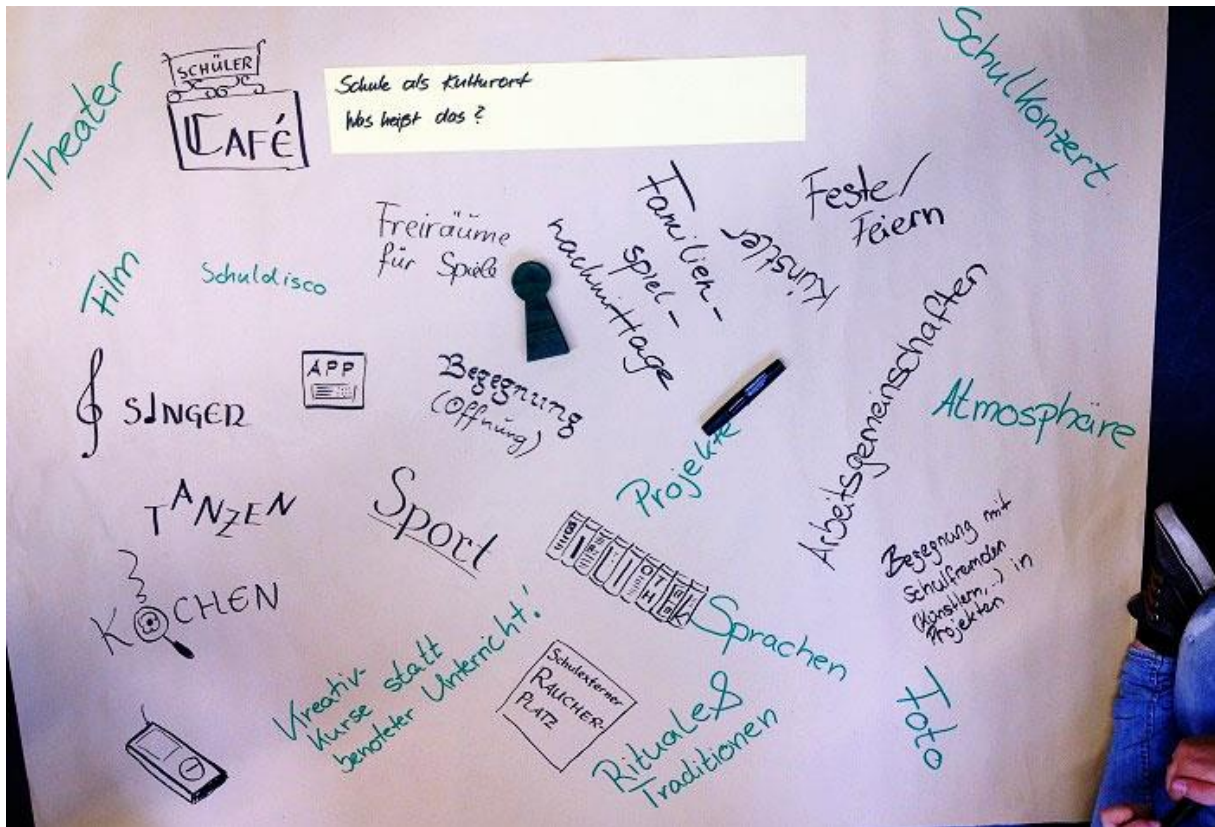 Theater
SCHÜLER
CAFÉ
Schule als Kulturort
Was heißt das?
Schulkonzert
Film
Schuldisco
Freiräume
für Spiele
Familien-
spiel-
nachmittage
Künstler
Feste/
Feiern
SINGEN
APP
Begegnung
(Öffnung)
Projekte
Arbeitsgemeinschaften
Atmosphäre
TANZEN
Sport
BIBLIOTHEK
Sprachen
Begegnung mit
Schulfremden
(Künstlern,..) in
Projekten
KOCHEN
Kreativ-
kurse statt
benoteter Unterricht!
Schulexterner
RAUCHER-
PLATZ
Rituale &
Traditionen
Foto